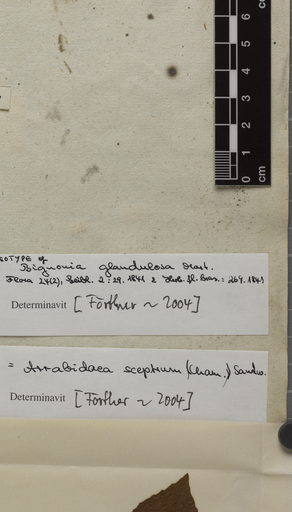 6
5
4
3
2
1
0
cm
OTYPE of
Bignonia glandulosa Mart.
Flora 24(2), Beibl. 2: 29. 1841 & Herb. fl. Bras.: 269. 1841
Determinavit [Förther ~ 2004]
= Arrabidaea sceptrum (Cham.) Sandw.
Determinavit [Förther ~ 2004]